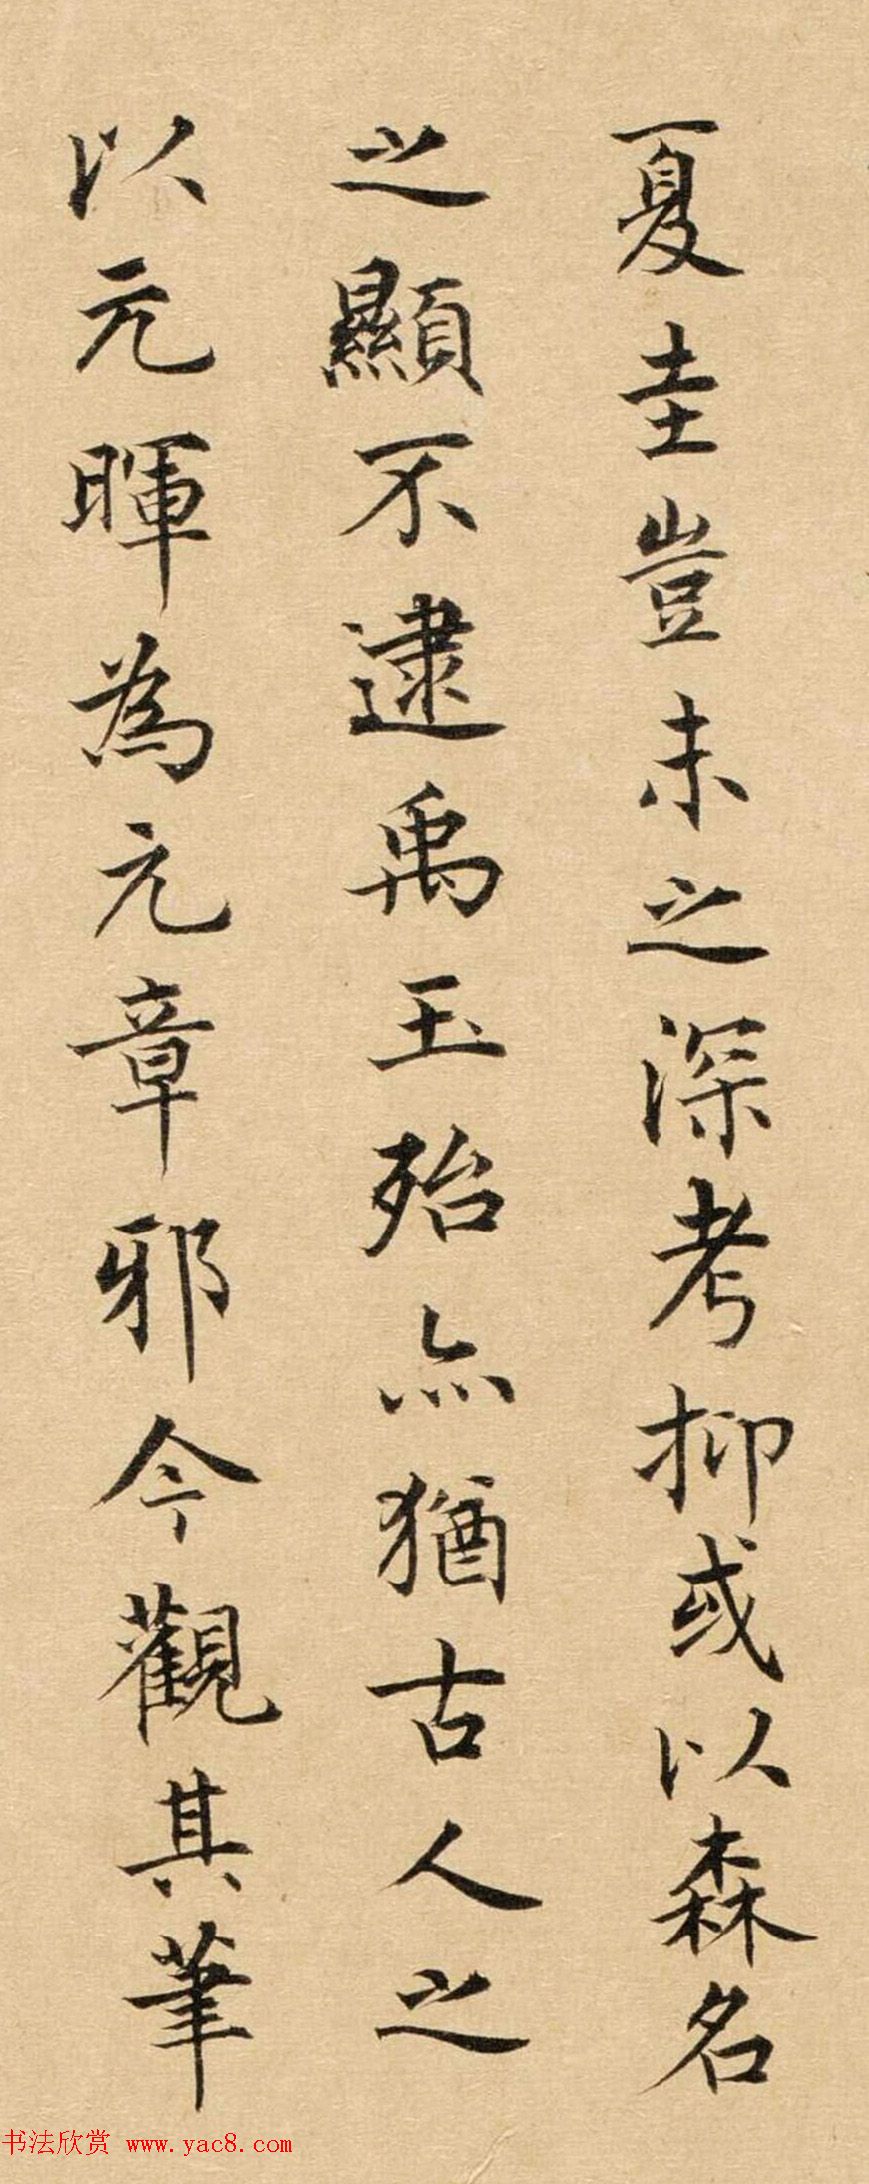 夏圭豈未之深考抑或以森名
之顯不逮禹玉殆亦猶古人之
以元暉為元章邪今觀其筆
书法欣赏 www.yac8.com